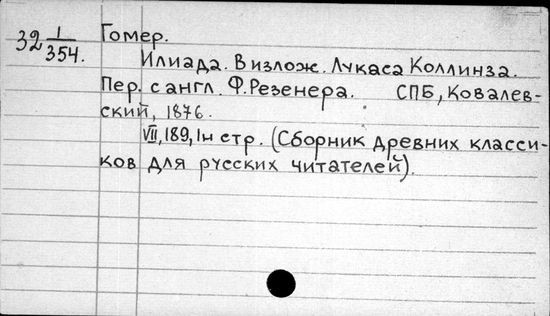 Гомер.
32 1/354.
Илиада. В излож. Лукаса Коллинза.
Пер. с англ. Ф. Резенера. СПБ, Ковалев-
ский, 1876.
VII, 189, 1н стр. (Сборник древних класси-
ков для русских читателей).